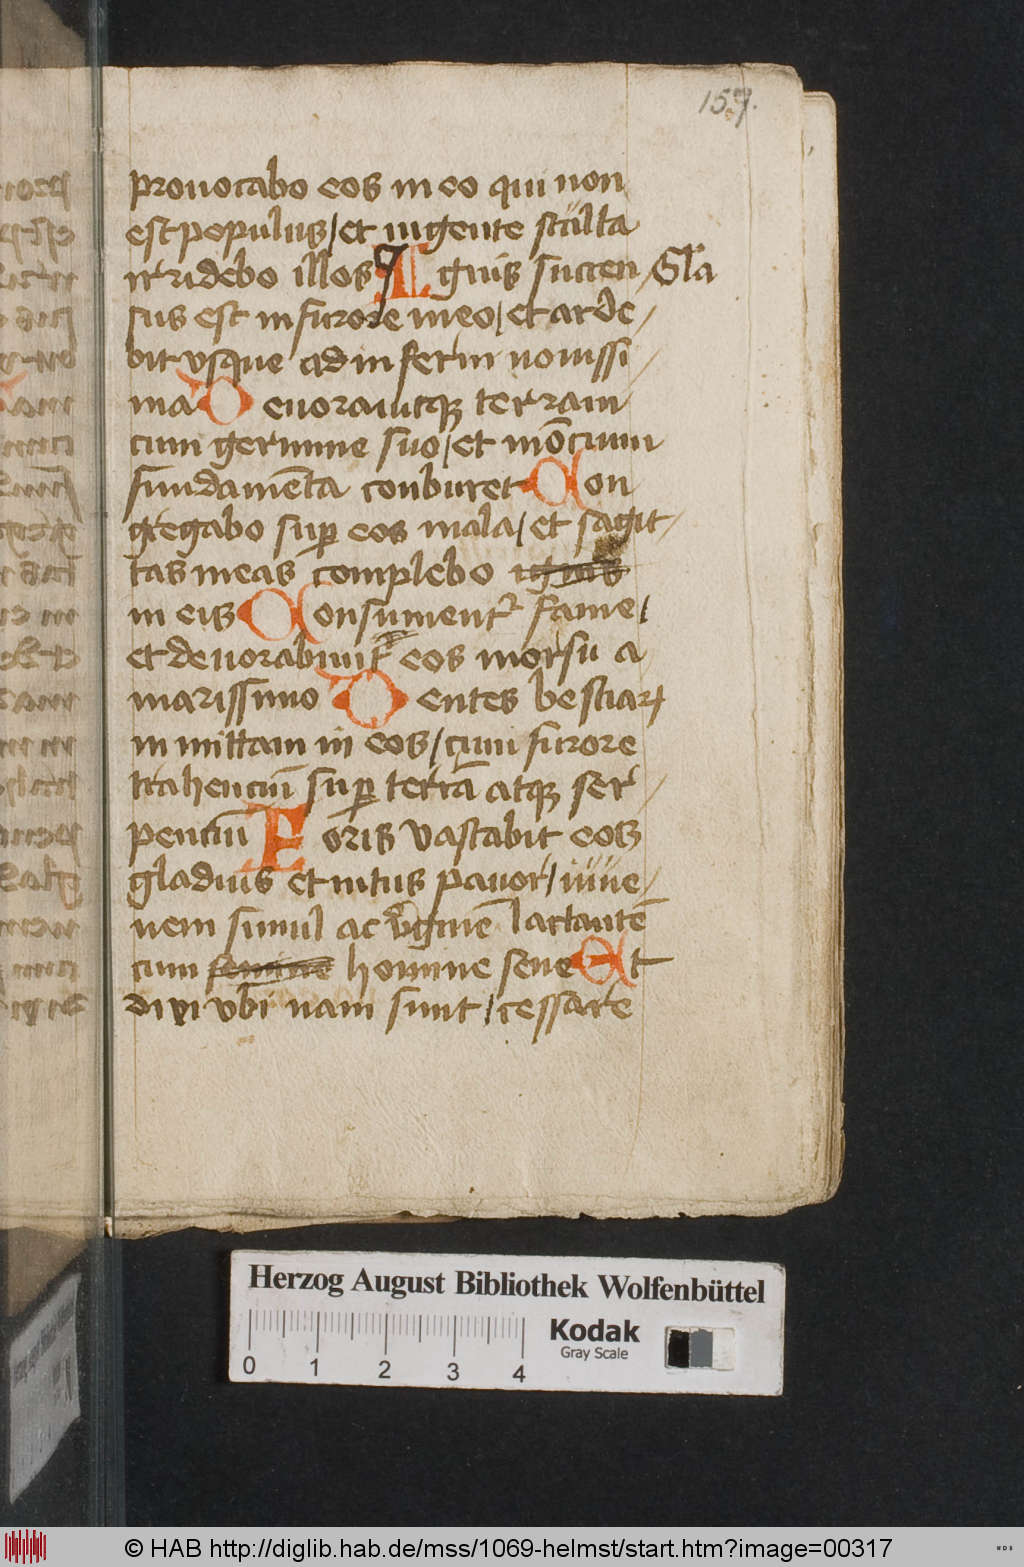 157.
prouocabo eos in eo qui non
est populus / et in gente stulta
irridebo illos Ignis succen / Gla
sus est in furore meo / et arde /
bit vsque ad inferni nouissi /
ma Deuorauitque terram
cum germine suo / et mōcium
fundamēta conburet Con
gregabo sup eos mala / et sagit /
tas meas complebo ignis
in eis Consument᷑ fame /
et deuorabunt eos morsu a
marissimo Dentes bestiarꝝ
inmittam in eos / cum furore
trahenciū sup terrā atque ser /
penciū Foris vastabit eos
gladius et intus pauor / iuue /
nem simul ac v̓ginē lactantē
cum homine sene Et
dixi vbi nam sunt / cessare
Herzog August Bibliothek Wolfenbüttel
Kodak
Gray Scale
0 1 2 3 4
© HAB http://diglib.hab.de/mss/1069-helmst/start.htm?image=00317